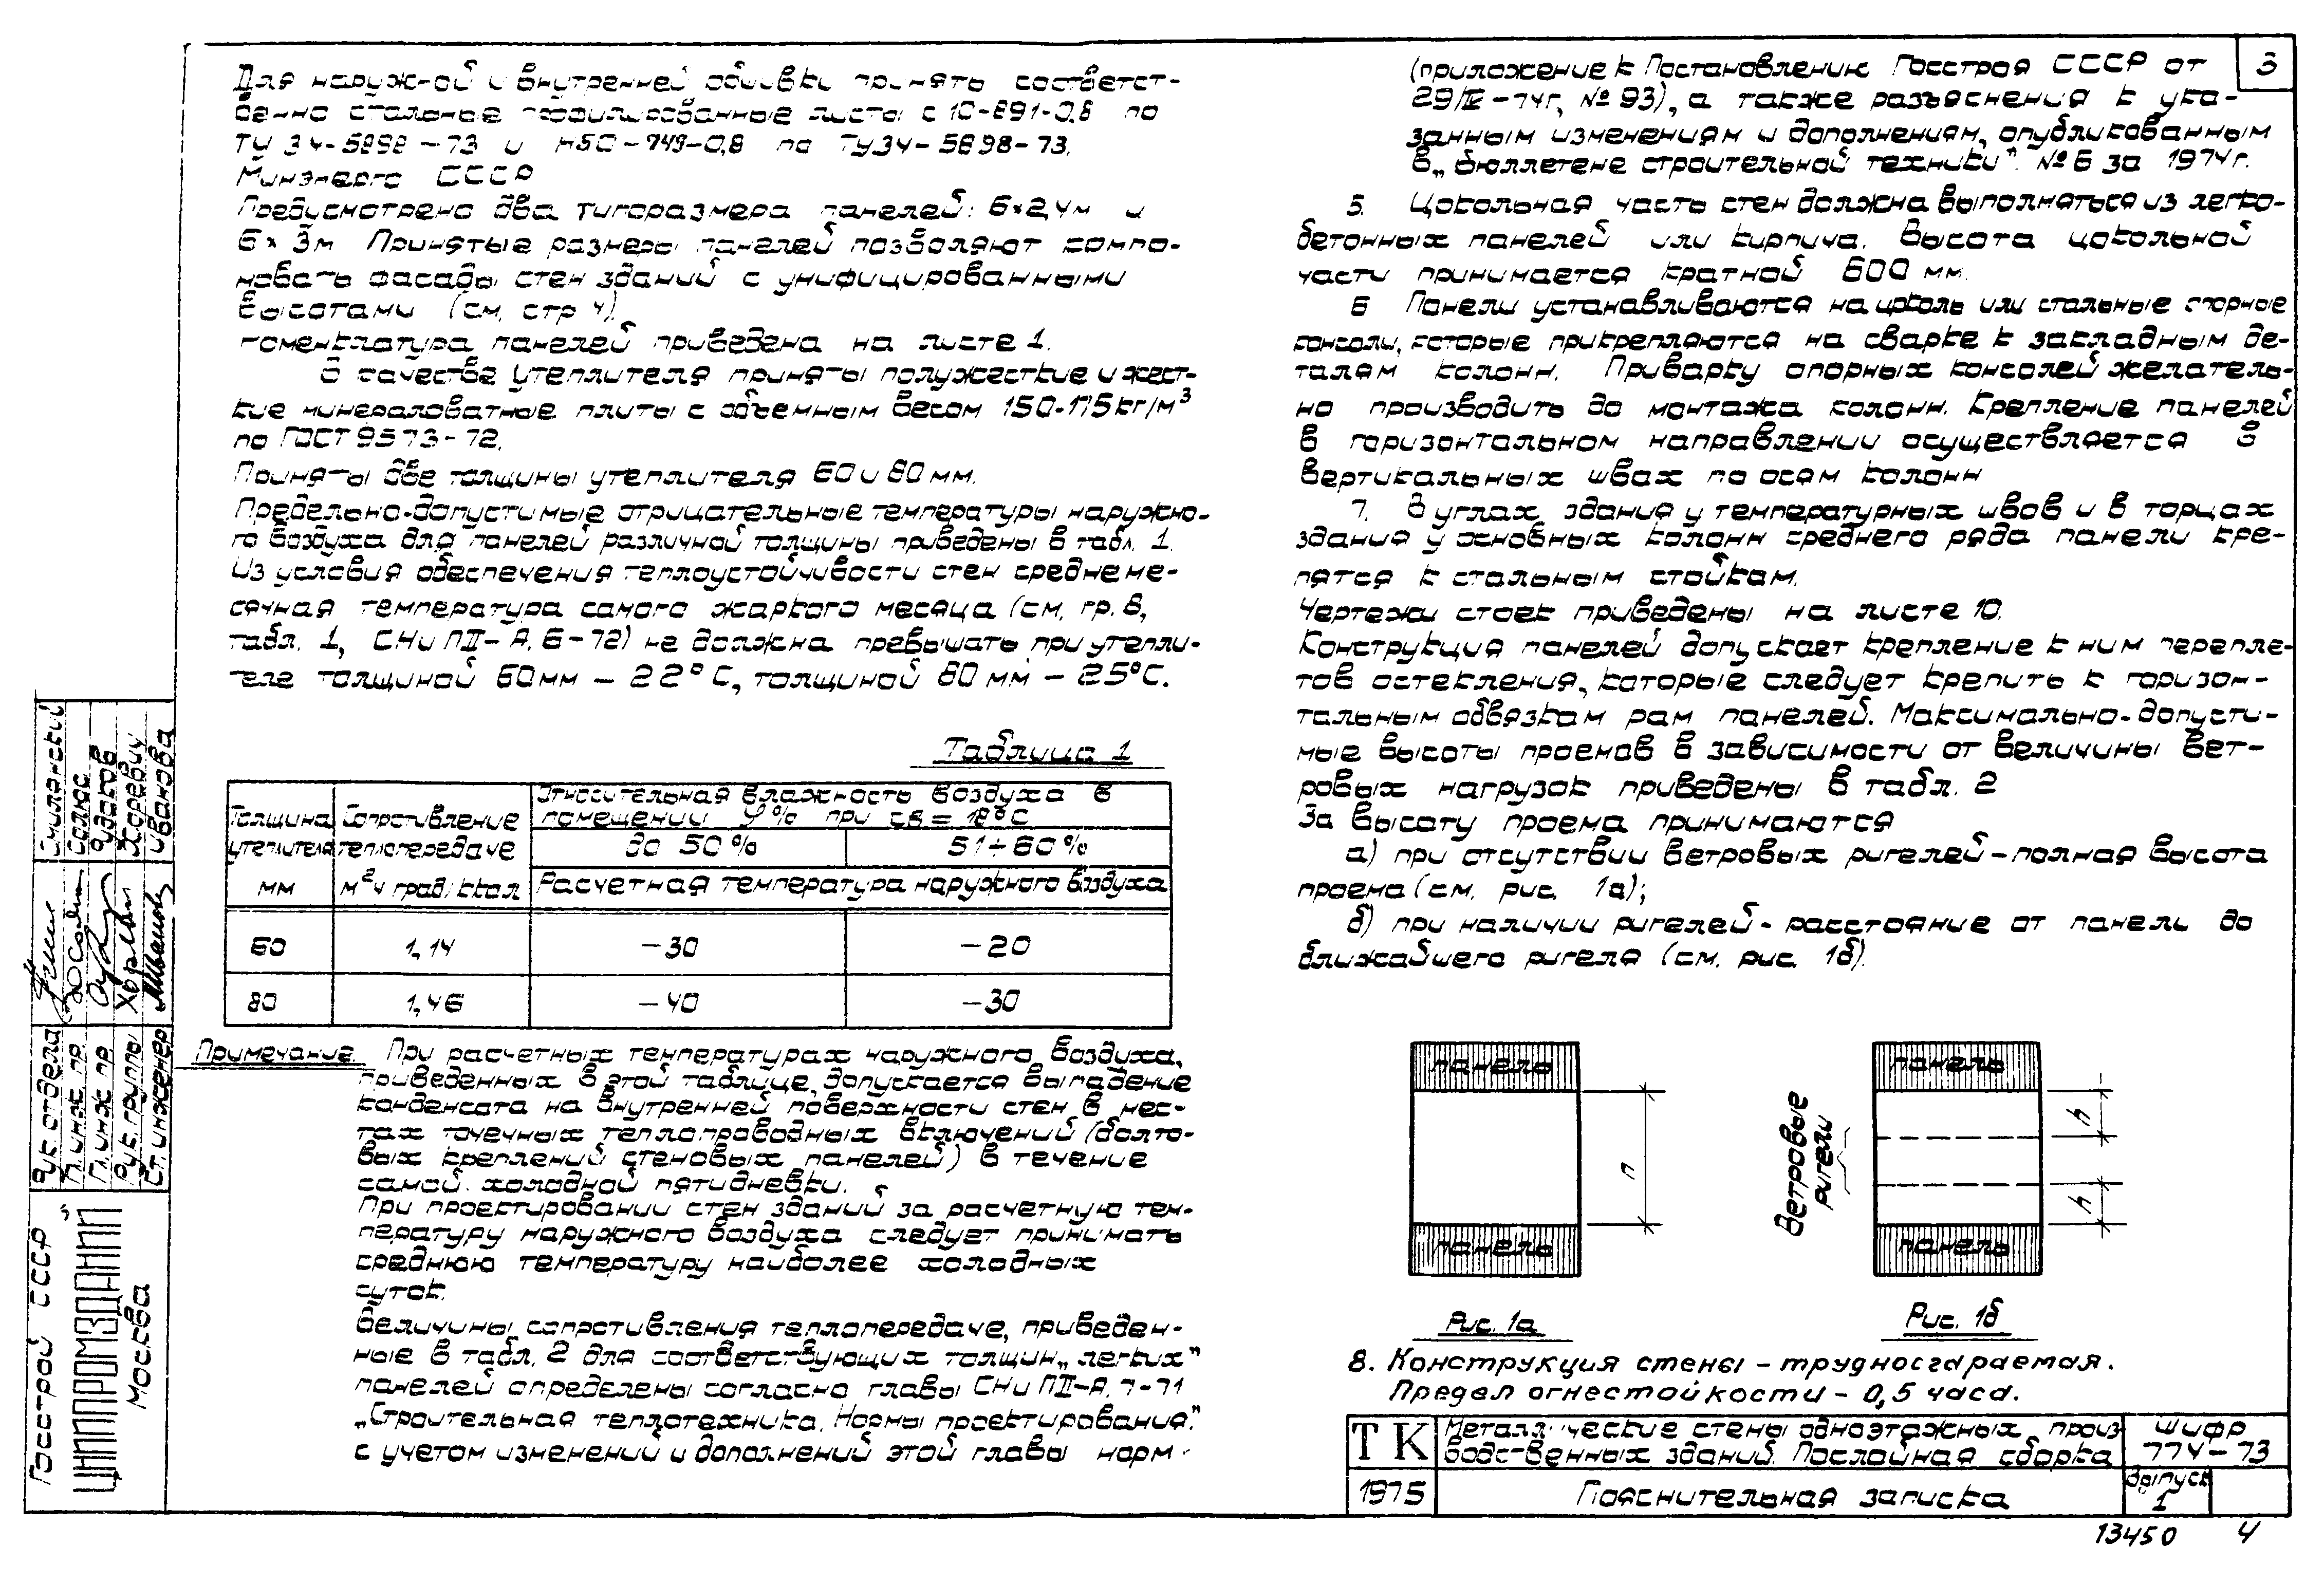 Для наружной и внутренней обшивки приняты соответст-
венно стальные профилированные листы С10-891-0,8 по
ТУ 34-5898-73 и Н50-749-0,8 по ТУ34-5898-73.
Минэнерго СССР
Предусмотрено два типоразмера панелей: 6×2,4м и
6×3м Принятые размеры панелей позволяют компо-
новать фасады стен зданий с унифицированными
высотами (см. стр 4).
Номенклатура панелей приведена на листе 1.
В качестве утеплителя приняты полужесткие и жест-
кие минераловатные плиты с объемным весом 150-175кг/м³
по ГОСТ 9573-72.
Приняты две толщины утеплителя 60 и 80 мм.
Предельно-допустимые отрицательные температуры наружно-
го воздуха для панелей различной толщины приведены в табл. 1.
Из условия обеспечения теплоустойчивости стен среднеме-
сячная температура самого жаркого месяца (см. гр. 8,
табл. 1, СНиПII-А.6-72) не должна превышать при утепли-
теле толщиной 60мм – 22°С, толщиной 80 мм – 25°С.
Таблица 1
Толщина утеплителя мм
Сопротивление теплопередаче м²ч град/ккал
Относительная влажность воздуха в
помещении φ% при tв = 18°С
до 50% 51÷60%
Расчетная температура наружного воздуха
60 1,14 -30 -20
80 1,46 -40 -30
Примечание. При расчетных температурах наружного воздуха,
приведенных в этой таблице, допускается выпадение
конденсата на внутренней поверхности стен в мес-
тах точечных теплопроводных включений (болто-
вых креплений стеновых панелей) в течение
самой холодной пятидневки.
При проектировании стен зданий за расчетную тем-
пературу наружного воздуха следует принимать
среднюю температуру наиболее холодных
суток.
Величины сопротивления теплопередаче, приведен-
ные в табл. 2 для соответствующих толщин „легких"
панелей определены согласно главы СНиПII-А.7-71
„Строительная теплотехника. Нормы проектирования".
с учетом изменений и дополнений этой главы норм
3
(приложение к Постановлению Госстроя СССР от
29/IV-74г, № 93), а также разъяснения к ука-
занным изменениям и дополнениям, опубликованным
в „бюллетене строительной техники". № 6 за 1974г.
5. Цокольная часть стен должна выполняться из легко-
бетонных панелей или кирпича. Высота цокольной
части принимается кратной 600 мм.
6 Панели устанавливаются на цоколь или стальные опорные
консоли, которые прикрепляются на сварке к закладным де-
талям колонн. Приварку опорных консолей желатель-
но производить до монтажа колонн. Крепление панелей
в горизонтальном направлении осуществляется в
вертикальных швах по осям колонн
7. В углах здания у температурных швов и в торцах
здания у основных колонн среднего ряда панели кре-
пятся к стальным стойкам.
Чертежи стоек приведены на листе 10.
Конструкция панелей допускает крепление к ним перепле-
тов остекления, которые следует крепить к горизон-
тальным обвязкам рам панелей. Максимально-допусти-
мые высоты проемов в зависимости от величины вет-
ровых нагрузок приведены в табл. 2
За высоту проема принимаются
а) при отсутствии ветровых ригелей – полная высота
проема (см. рис. 1а);
б) при наличии ригелей - расстояние от панель до
ближайшего ригеля (см. рис. 1б).
панель
h
панель
Рис. 1а
Ветровые
ригели
панель
h
h
панель
Рис. 1б
8. Конструкция стены – трудносгораемая.
Предел огнестойкости – 0,5 часа.
ТК
Металлические стены одноэтажных произ-
водственных зданий. Послойная сборка
шифр
774-73
1975
Пояснительная записка
выпуск
1
13450 4
Госстрой СССР
ЦНИИПРОМЗДАНИЙ
Москва
Рук. отдела
Гл. инж. пр.
Гл. инж. пр.
Рук. группы
Ст. инженер
Смилянский
Иванова